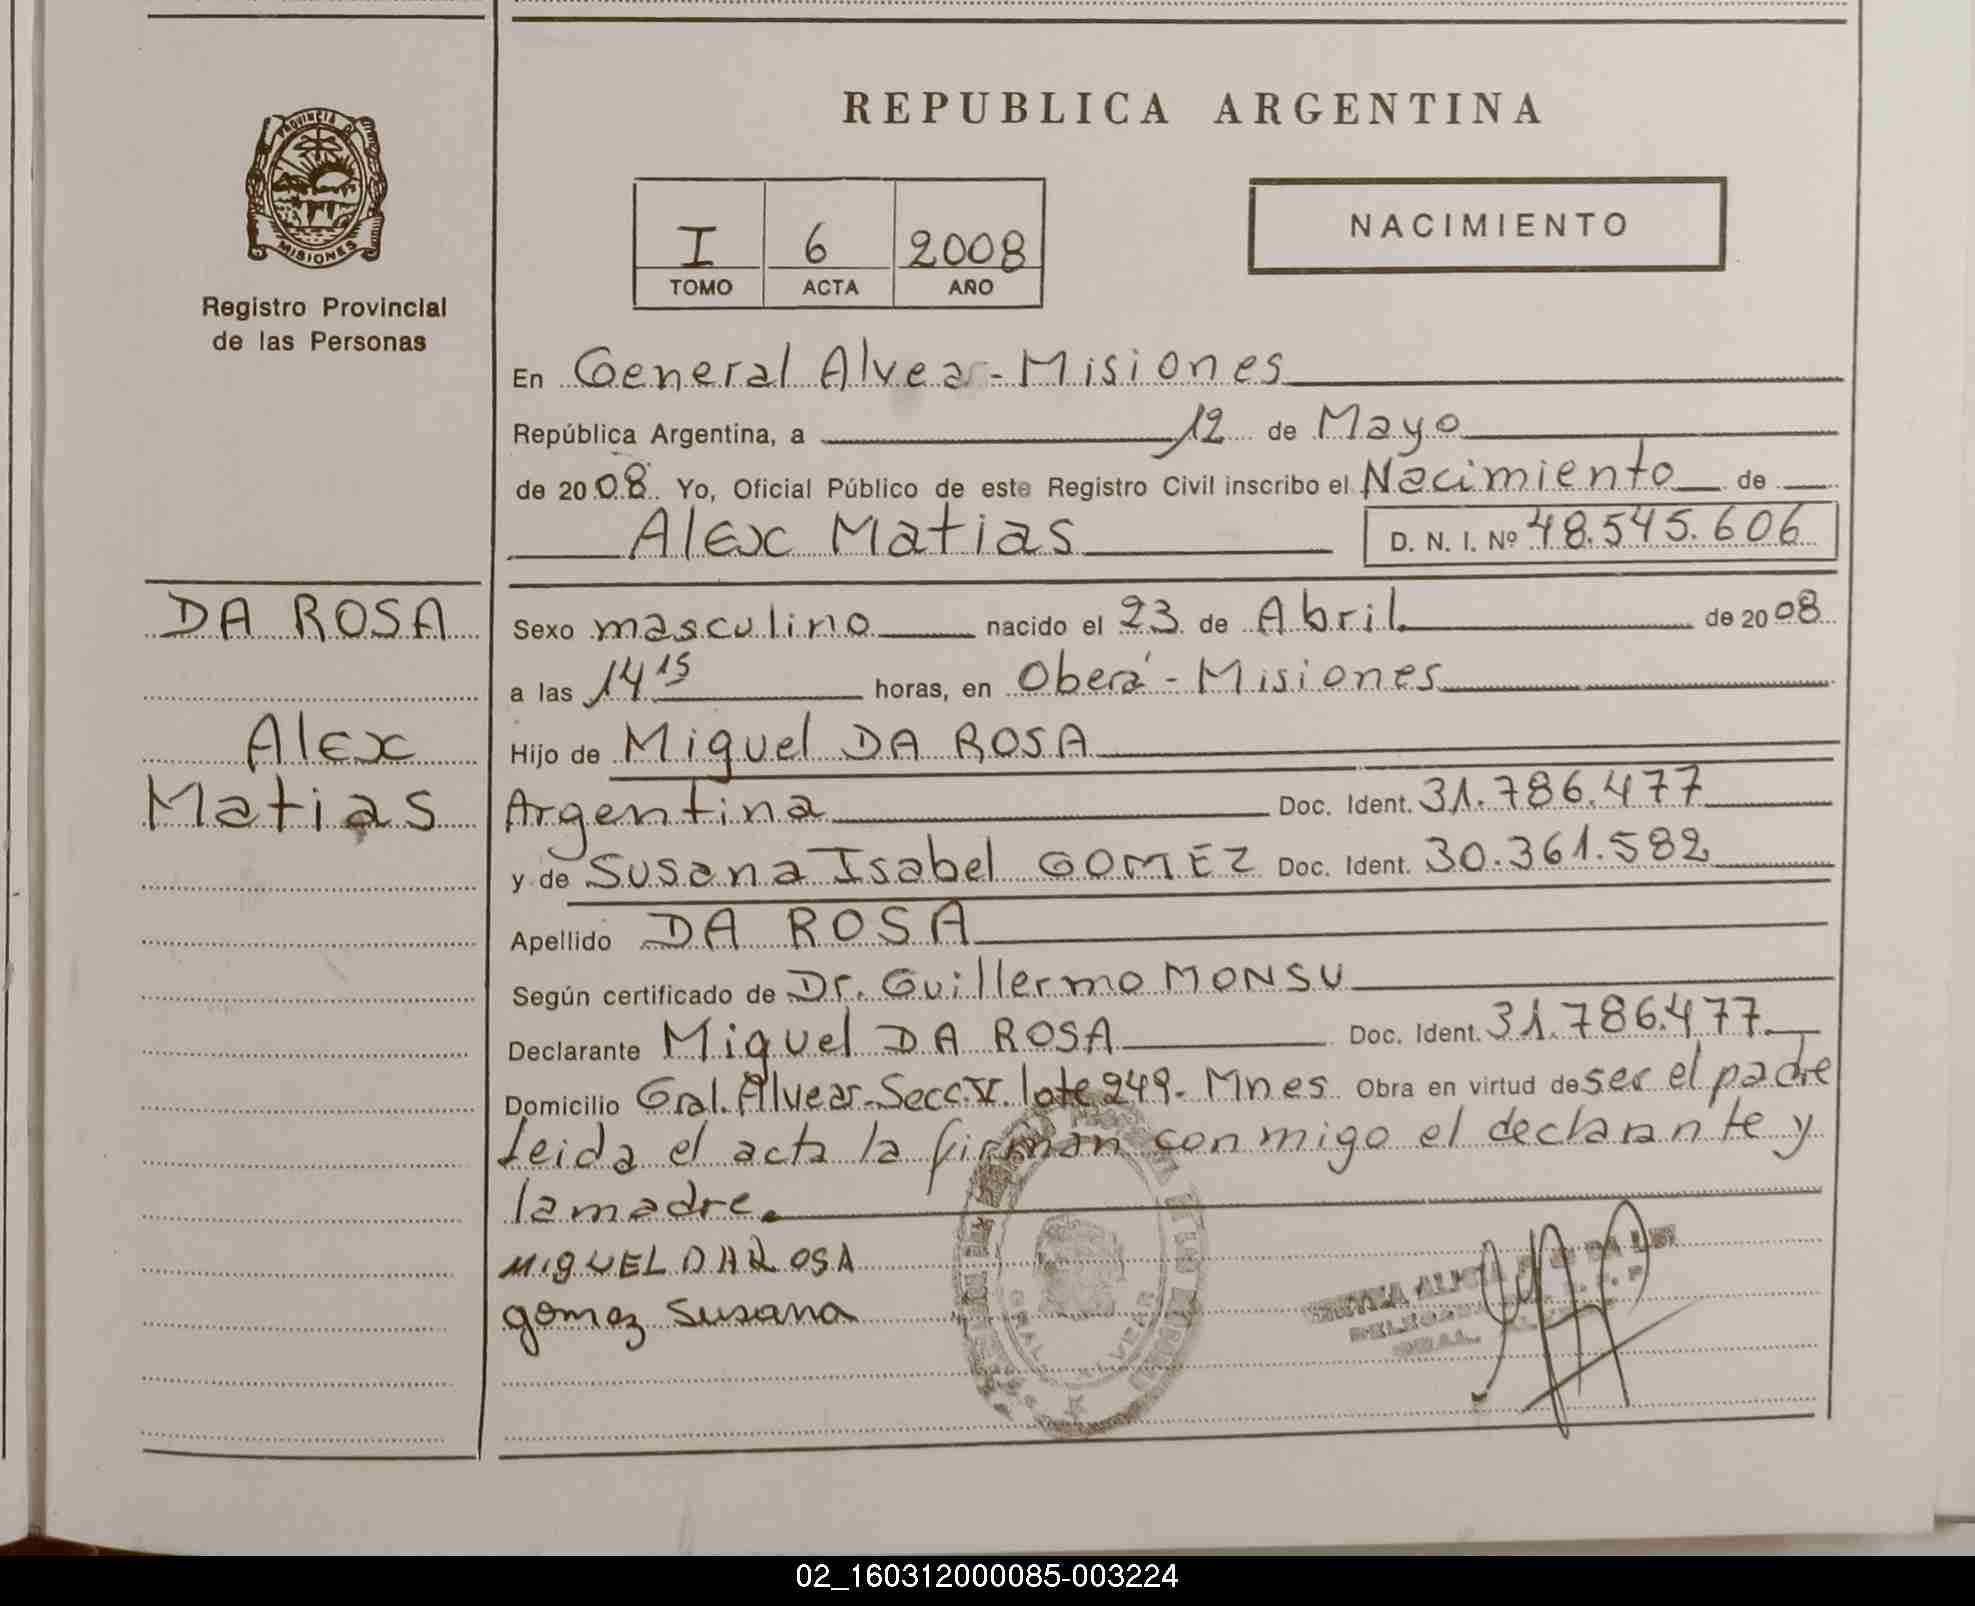 REPUBLICA ARGENTINA
PROVINCIA D
MISIONES
Registro Provincial
de las Personas
I 6 2008
TOMO ACTA AÑO
NACIMIENTO
En General Alvear - Misiones
República Argentina, a 12 de Mayo
de 2008. Yo, Oficial Público de este Registro Civil inscribo el Nacimiento de
Alex Matias D. N. I. Nº 48.545.606
DA ROSA
Alex
Matias
Sexo masculino nacido el 23 de Abril de 2008
a las 14 15 horas, en Oberá - Misiones
Hijo de Miguel DA ROSA
Argentina Doc. Ident. 31.786.477
y de Susana Isabel GOMEZ Doc. Ident. 30.361.582
Apellido DA ROSA
Según certificado de Dr. Guillermo MONSU
Declarante Miguel DA ROSA Doc. Ident. 31.786.477
Domicilio Gral. Alvear - Secc. V. lote 249 - Mnes Obra en virtud de ser el padre
Leida el acta la firman conmigo el declarante y
la madre.
MIGUEL DAROSA
gomez susana
GRAL. ALVEAR
02_160312000085-003224